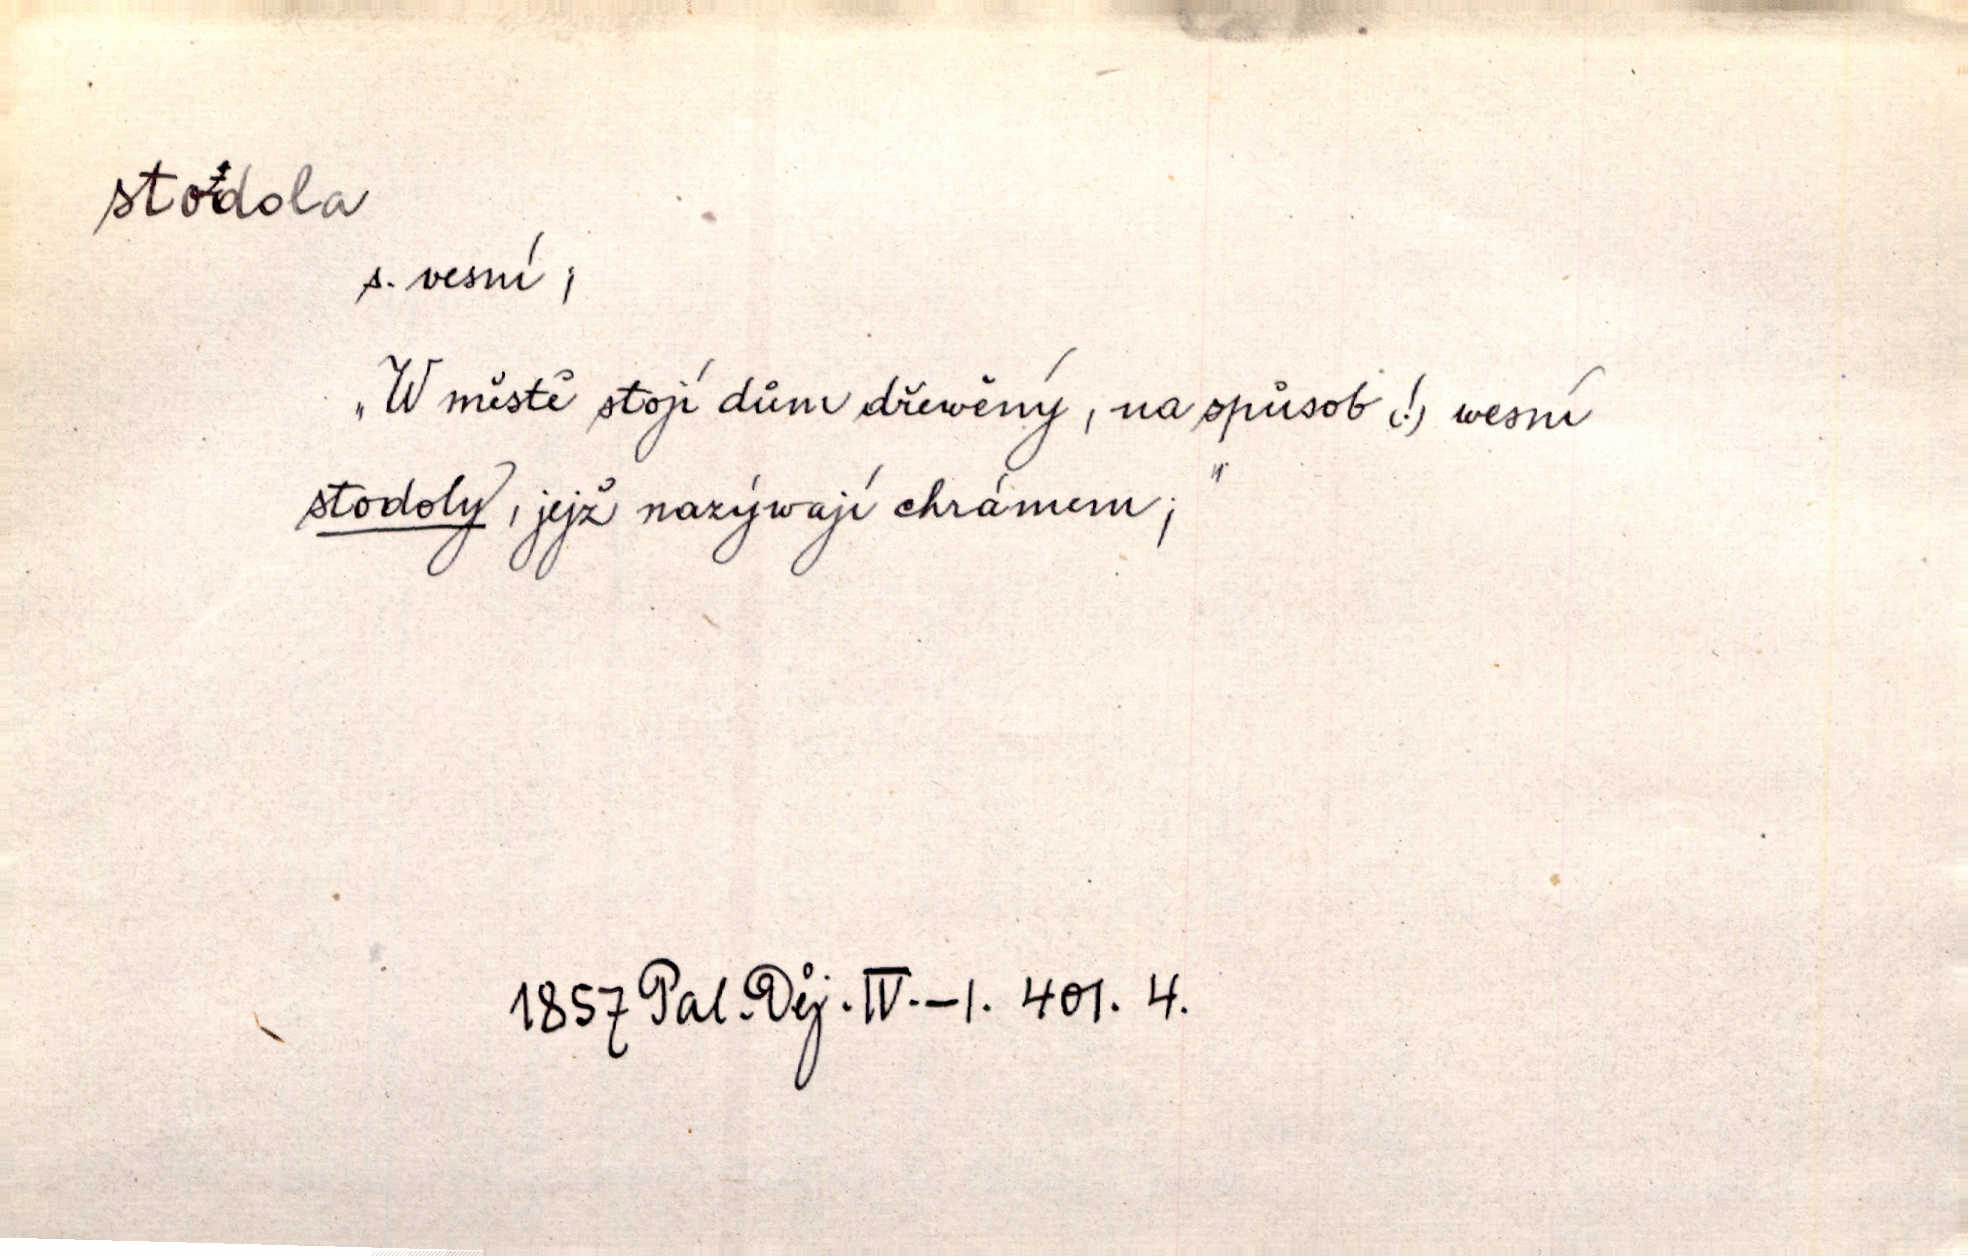 stodola
s. vesní;
„W městě stojí dům dřewěný, na spůsob (!) wesní
stodoly, jejž nazýwají chrámem;"
1857 Pal. Děj. IV.–1. 401. 4.